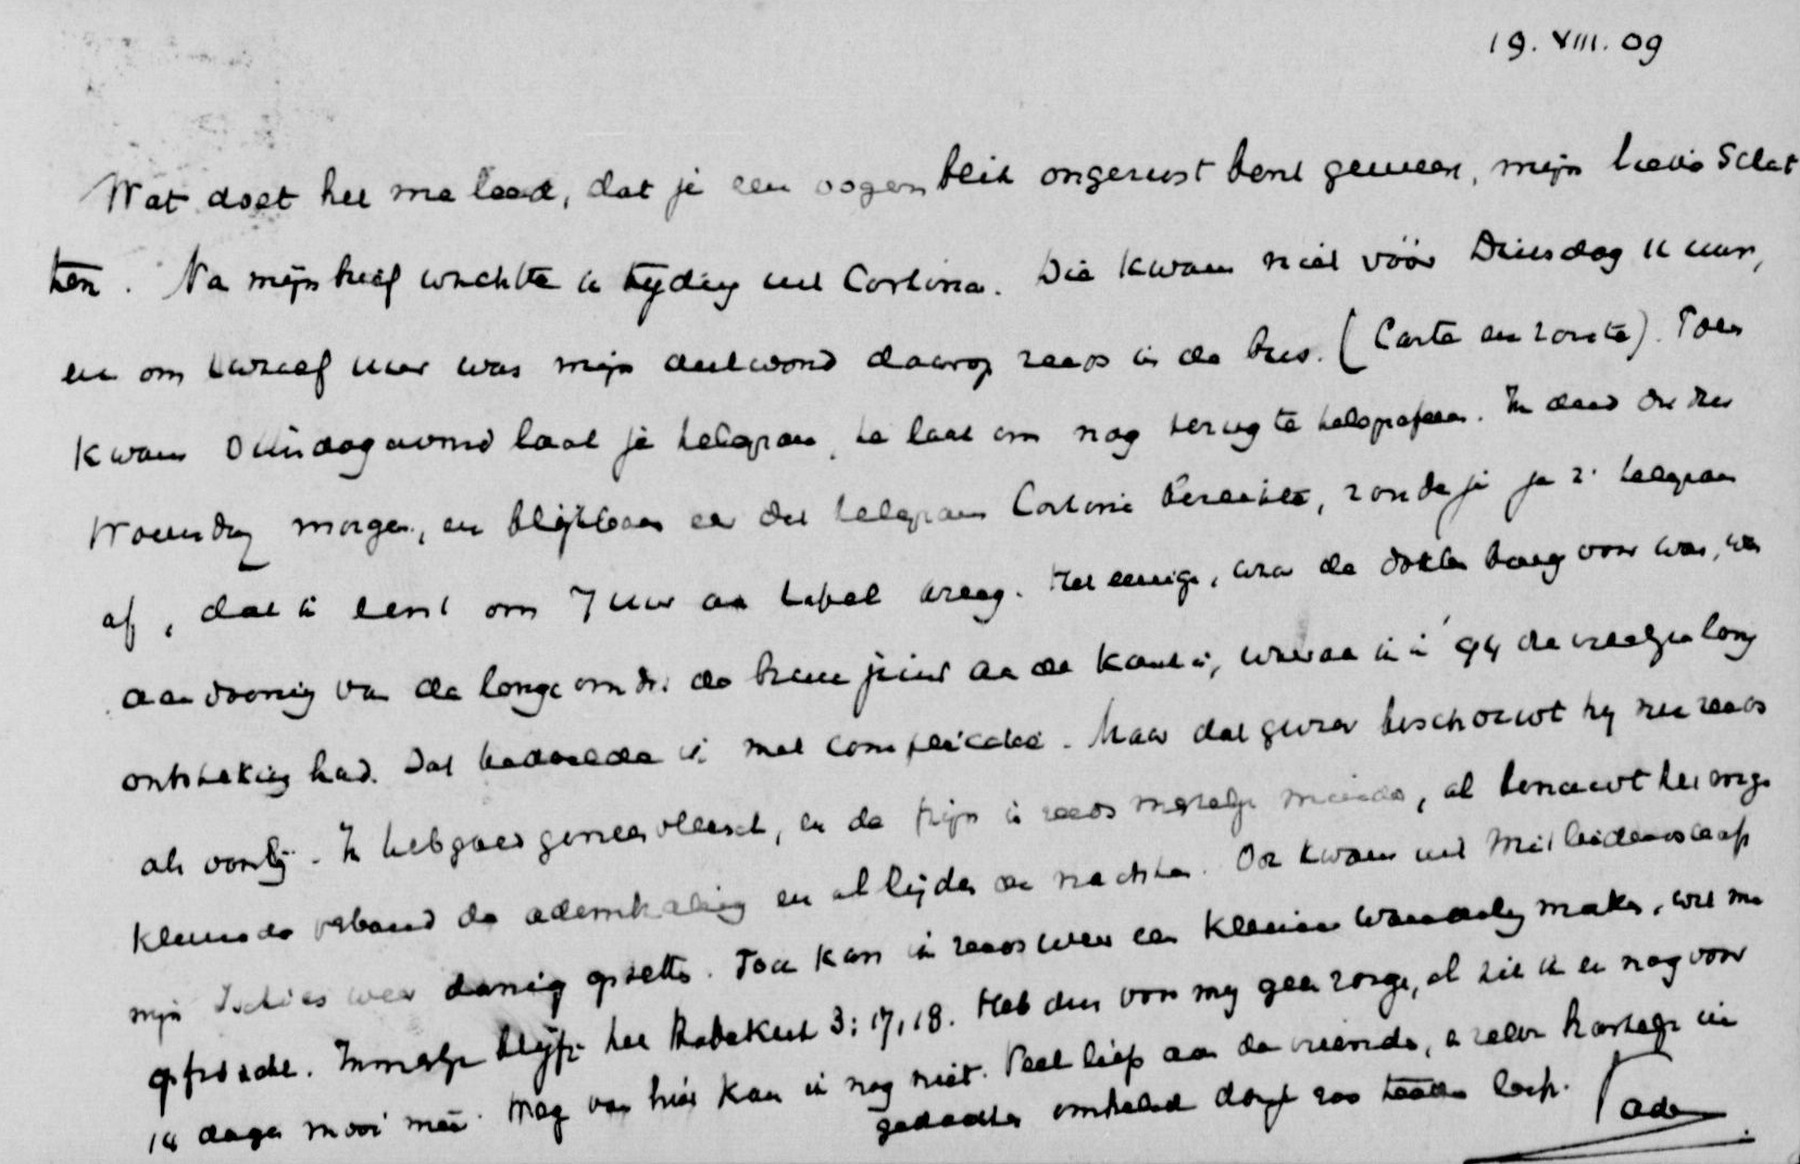 19. VIII. 09
Wat doet het me leed, dat je een oogenblik ongerust bent geweest, mijn lieve Schat
ten. Na mijn brief wachtte ik tijding uit Cortina. Die kwam niet vóór Dinsdag 11 uur,
en om twaalf uur was mijn antwoord daarop reeds in de bus. (Carte en route). Toen
kwam Dinsdagavond laat je telegram, te laat om nog terug te telegrafeeren. Ik deed dit dus
Woensdag morgen, en blijkbaar eer dit telegram Cortina bereikte, zondt je je 2e telegram
af, dat ik eerst om 7 uur aan tafel kreeg. Het eenige, waar de dokter bang voor was, was
aandoening van de long omdat de pijn aan de kant is, waaraan ik in '94 de long
ontsteking had. Dat bedoelde ik met complicatie. Maar dat gevaar beschouwt hij nu reeds
als voorbij. Ik heb goed genees vleesch, en de pijn is reeds merkelijk minder, al benauwt het enge
klemmende verband de ademhaling en al lijden de nachten. Ook kwam uit Mitleidenschaft
mijn Ischias weer danig opzetten. Toch kan ik reeds weer een kleine wandeling maken, wel me
opfrischt. Innerlijk blijft het Habakuk 3:17,18. Heb dus voor mij geen zorge, al zit ik er nog voor
14 dagen mooi mee. Weg van hier kan ik nog niet. Veel liefs aan de vrienden, en zelve hartelijk in
gedachten omhelsd door zoo teeder liefh.
Vader